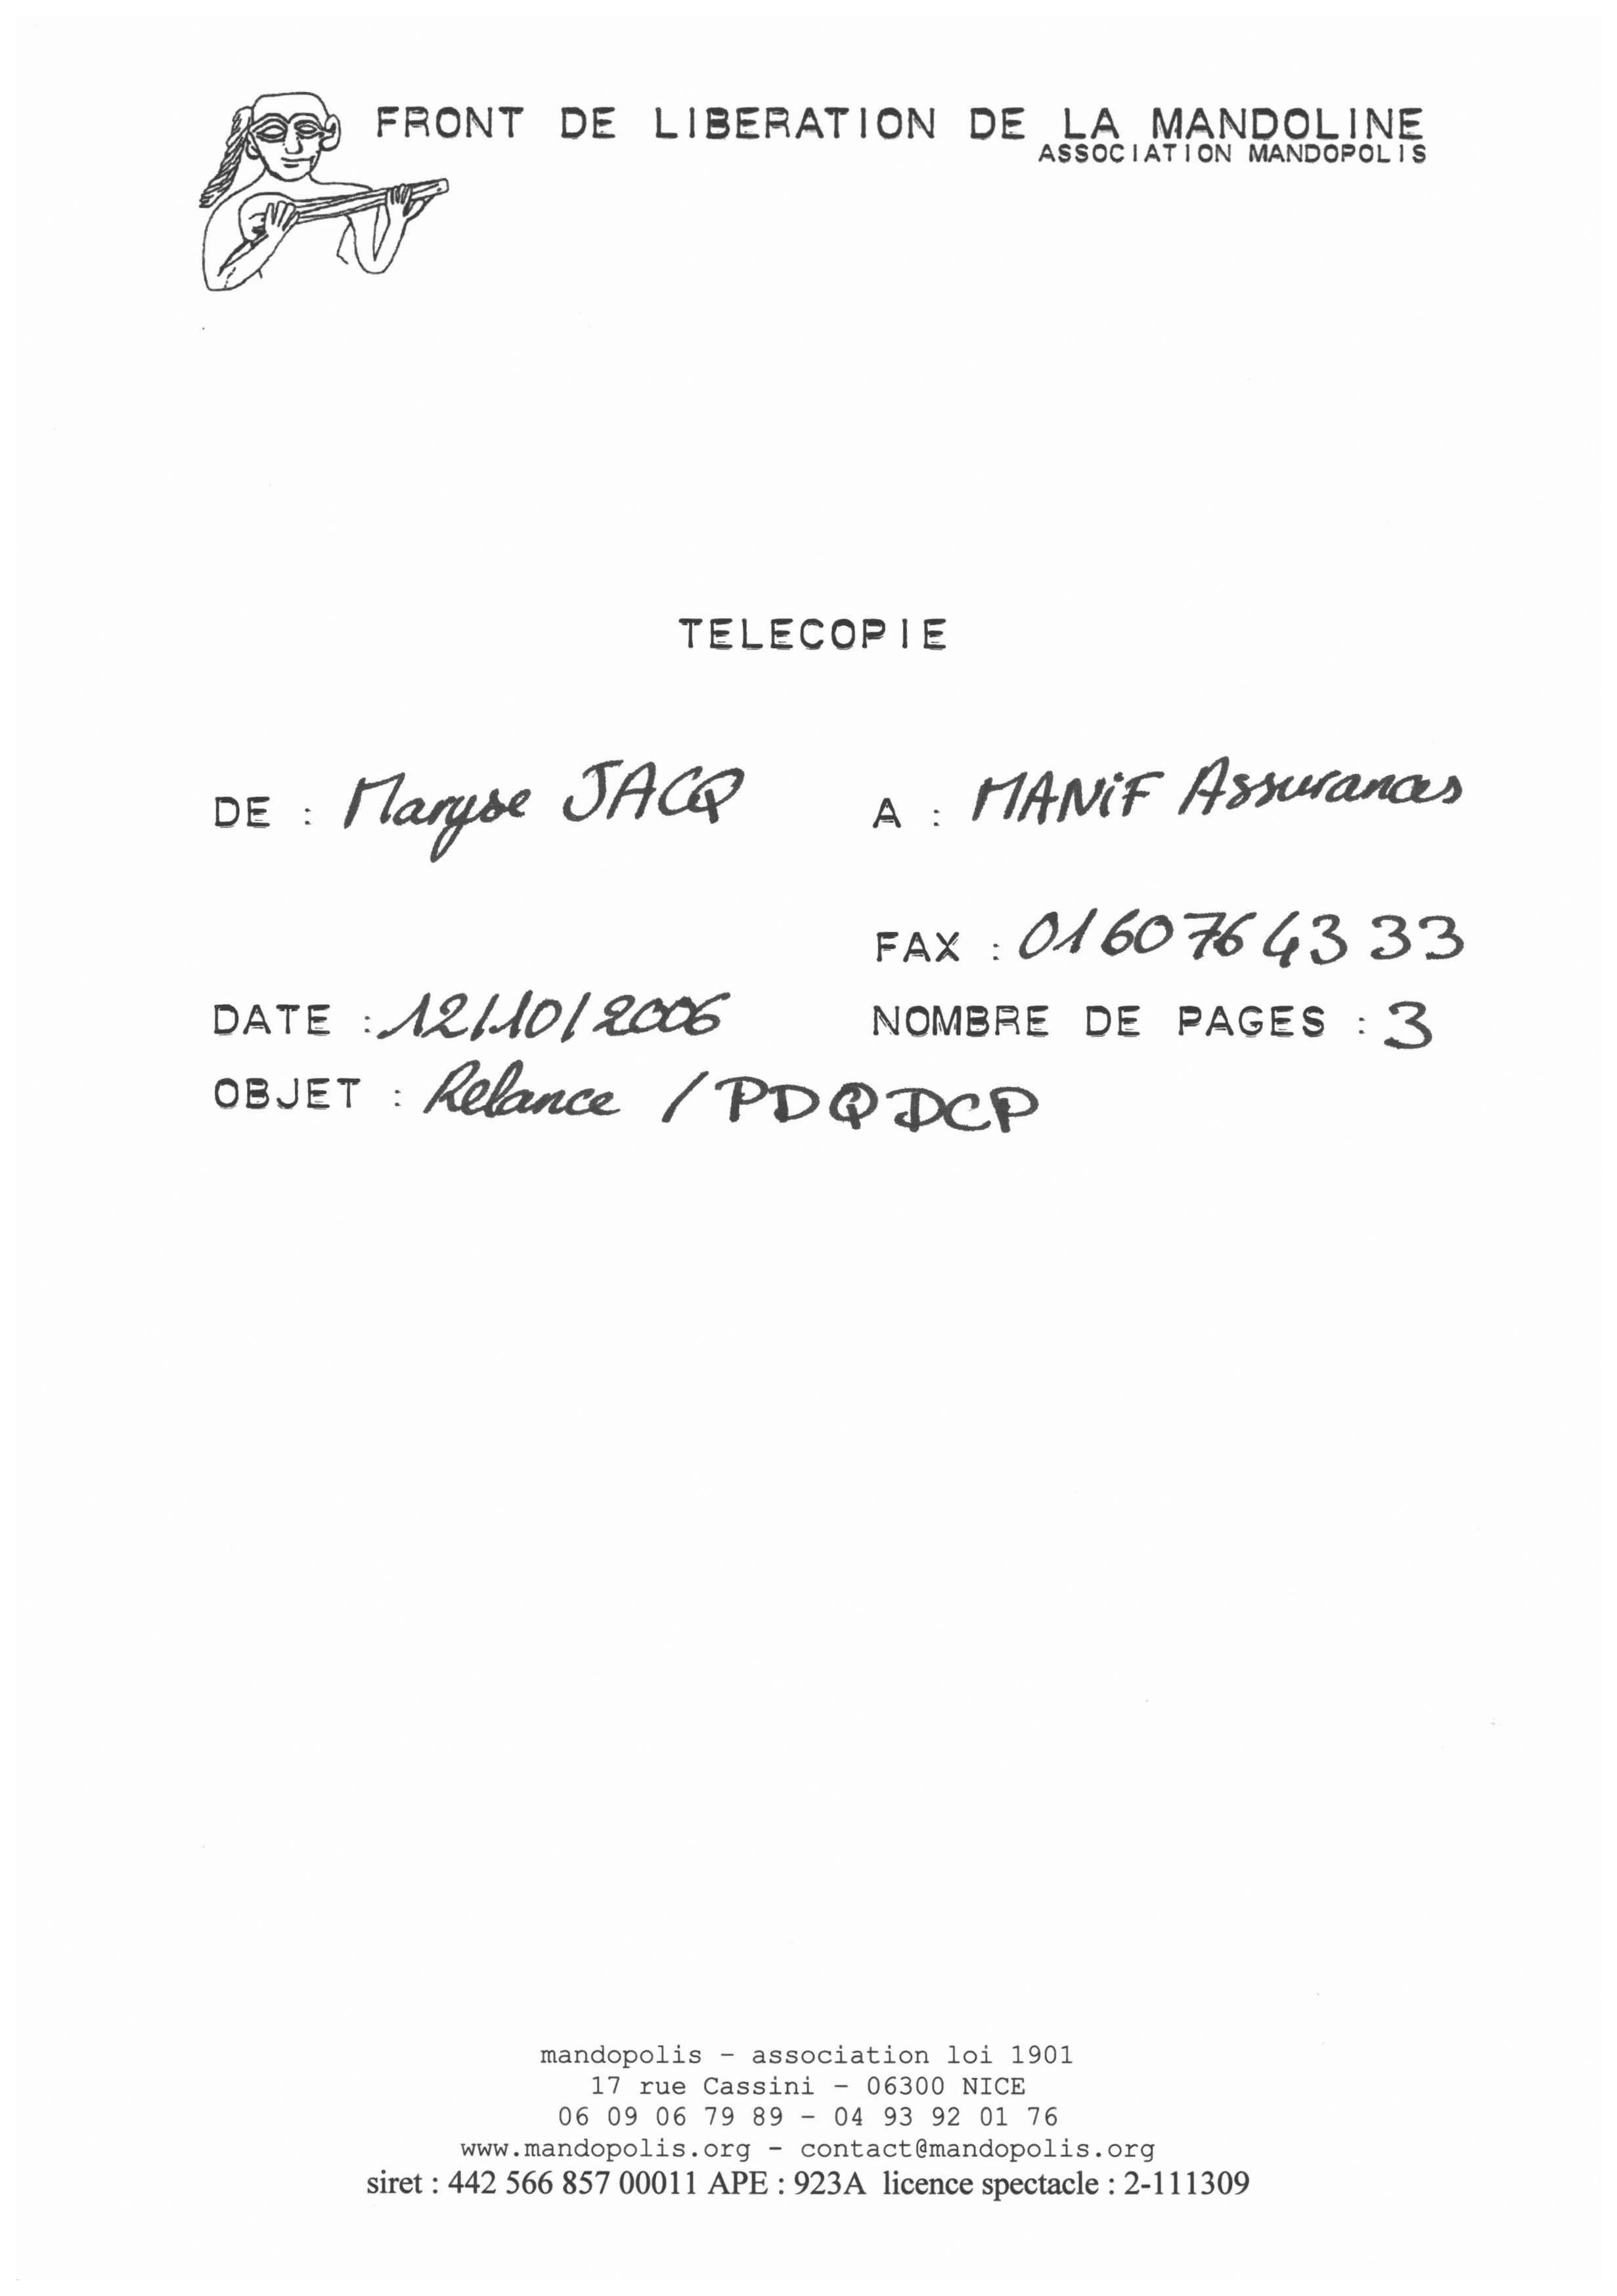 FRONT DE LIBERATION DE LA MANDOLINE
ASSOCIATION MANDOPOLIS
TELECOPIE
DE : Maryse JACQ
A : MANiF Assurances
FAX : 01 60 76 43 33
DATE : 12/10/2006
NOMBRE DE PAGES : 3
OBJET : Relance / PDQDCP
mandopolis - association loi 1901
17 rue Cassini - 06300 NICE
06 09 06 79 89 - 04 93 92 01 76
www.mandopolis.org - contact@mandopolis.org
siret : 442 566 857 00011 APE : 923A licence spectacle : 2-111309